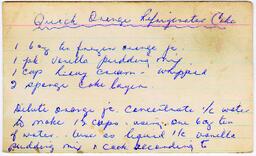 Quick Orange Refrigerator Cake
1 6 oz frozen orange jc.
1 pk Vanilla pudding mix
1 cup heavy cream - whipped
2 sponge cake layers
Dilute orange jc. concentrate c water
to make 1½ cups - using one 6oz tin
of water. Use as liquid vanilla
pudding mix & cook according to